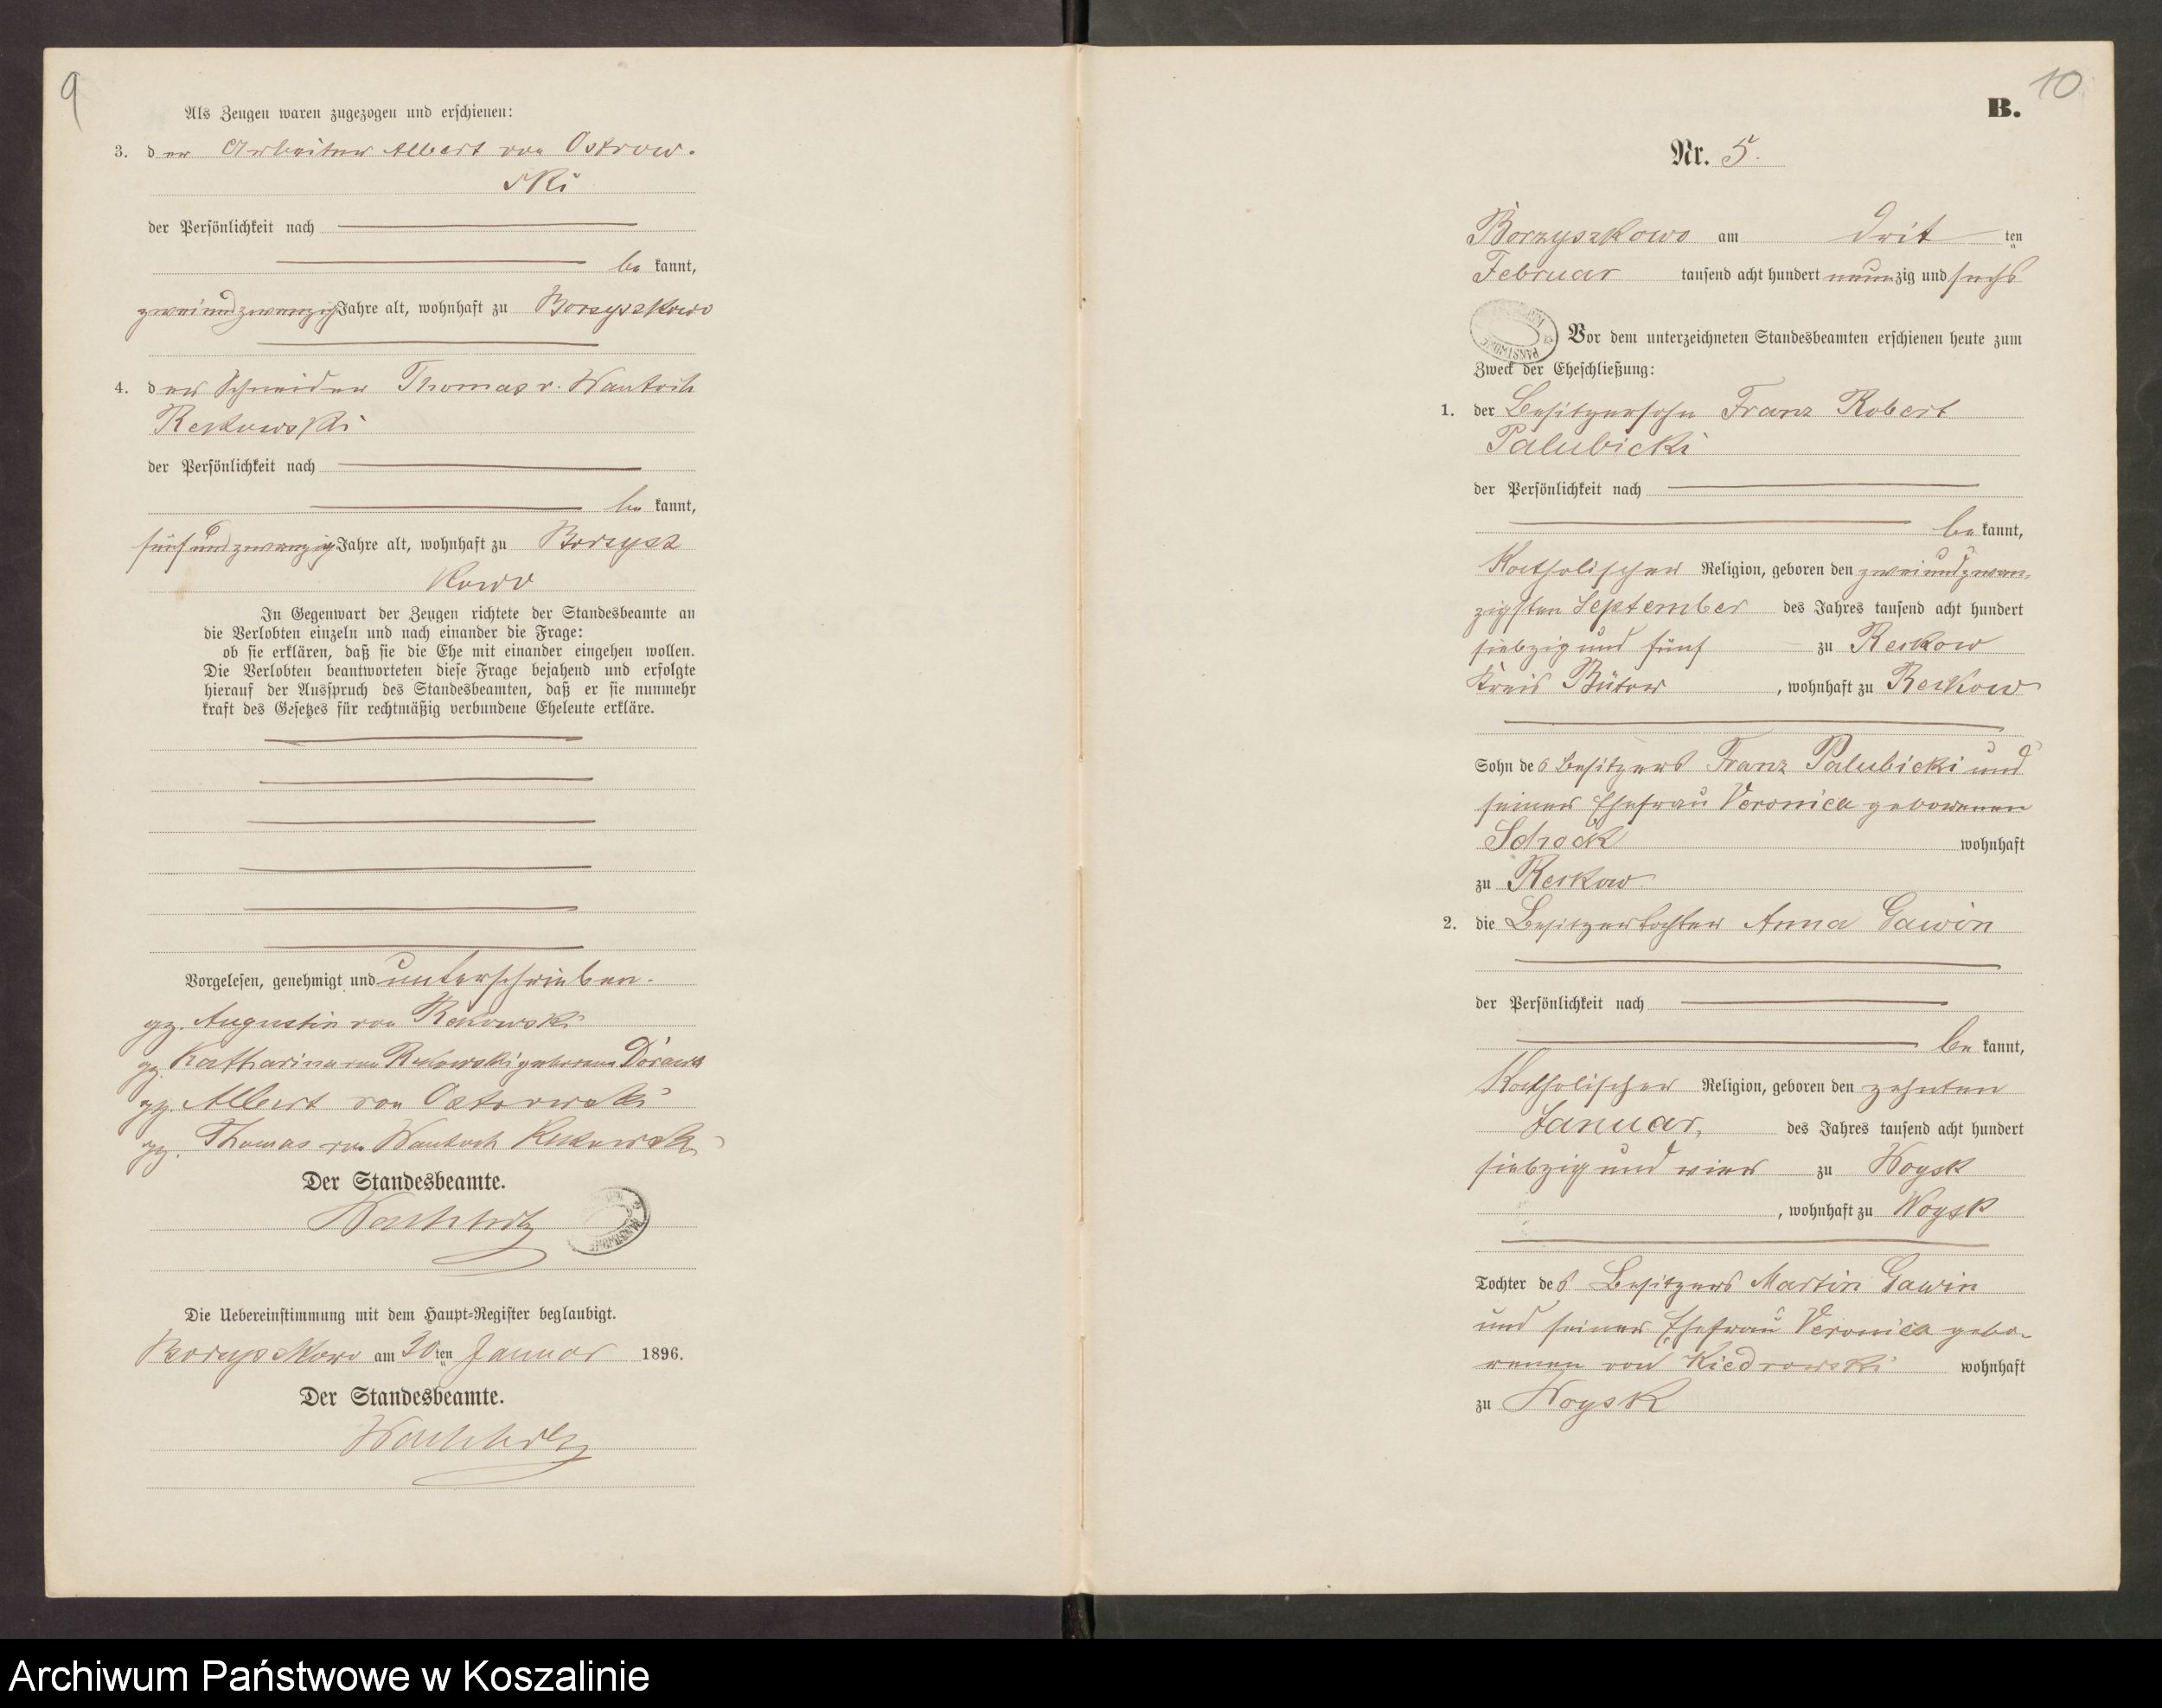 9
Als Zeugen waren zugezogen und erschienen:
3. der Arbeiter Albert von Ostrow-
ski
der Persönlichkeit nach
be kannt,
zweiundzwanzig Jahre alt, wohnhaft zu Borzyszkowo
4. der Schneider Thomas v. Wantoch
Rekowski
der Persönlichkeit nach
be kannt,
fünfundzwanzig Jahre alt, wohnhaft zu Borzysz
kowo
In Gegenwart der Zeugen richtete der Standesbeamte an
die Verlobten einzeln und nach einander die Frage:
ob sie erklären, daß sie die Ehe mit einander eingehen wollen.
Die Verlobten beantworteten diese Frage bejahend und erfolgte
hierauf der Ausspruch des Standesbeamten, daß er sie nunmehr
kraft des Gesetzes für rechtmäßig verbundene Eheleute erkläre.
Vorgelesen, genehmigt und unterschrieben.
gz. Augustin von Rekowski
gz. Katharina von Rekowski geborene
gz. Albert von Ostrowski
gz. Thomas von Wantoch Rekowski
Der Standesbeamte.
Die Uebereinstimmung mit dem Haupt-Register beglaubigt.
Borzyszkowo am 30ten Januar 1896.
Der Standesbeamte.
10
B.
Nr. 5.
Borzyszkowo am drit ten
Februar tausend acht hundert neunzig und sechs
Vor dem unterzeichneten Standesbeamten erschienen heute zum
Zweck der Eheschließung:
1. der Besitzersohn Franz Robert
Palubicki
der Persönlichkeit nach
be kannt,
Katholischer Religion, geboren den zweiundzwan-
zigsten September des Jahres tausend acht hundert
siebzig und fünf zu Reckow
Kreis Bütow, wohnhaft zu Reckow
Sohn des Besitzers Franz Palubicki und
seiner Ehefrau Veronica geborenen
Schock wohnhaft
zu Reckow
2. die Besitzertochter Anna Gawin
der Persönlichkeit nach
be kannt,
Katholischer Religion, geboren den zehnten
Januar, des Jahres tausend acht hundert
siebzig und vier zu Woysk
, wohnhaft zu Woysk
Tochter des Besitzers Martin Gawin
und seiner Ehefrau Veronica gebo-
renen von Kiedrowski wohnhaft
zu Woysk
Archiwum Państwowe w Koszalinie